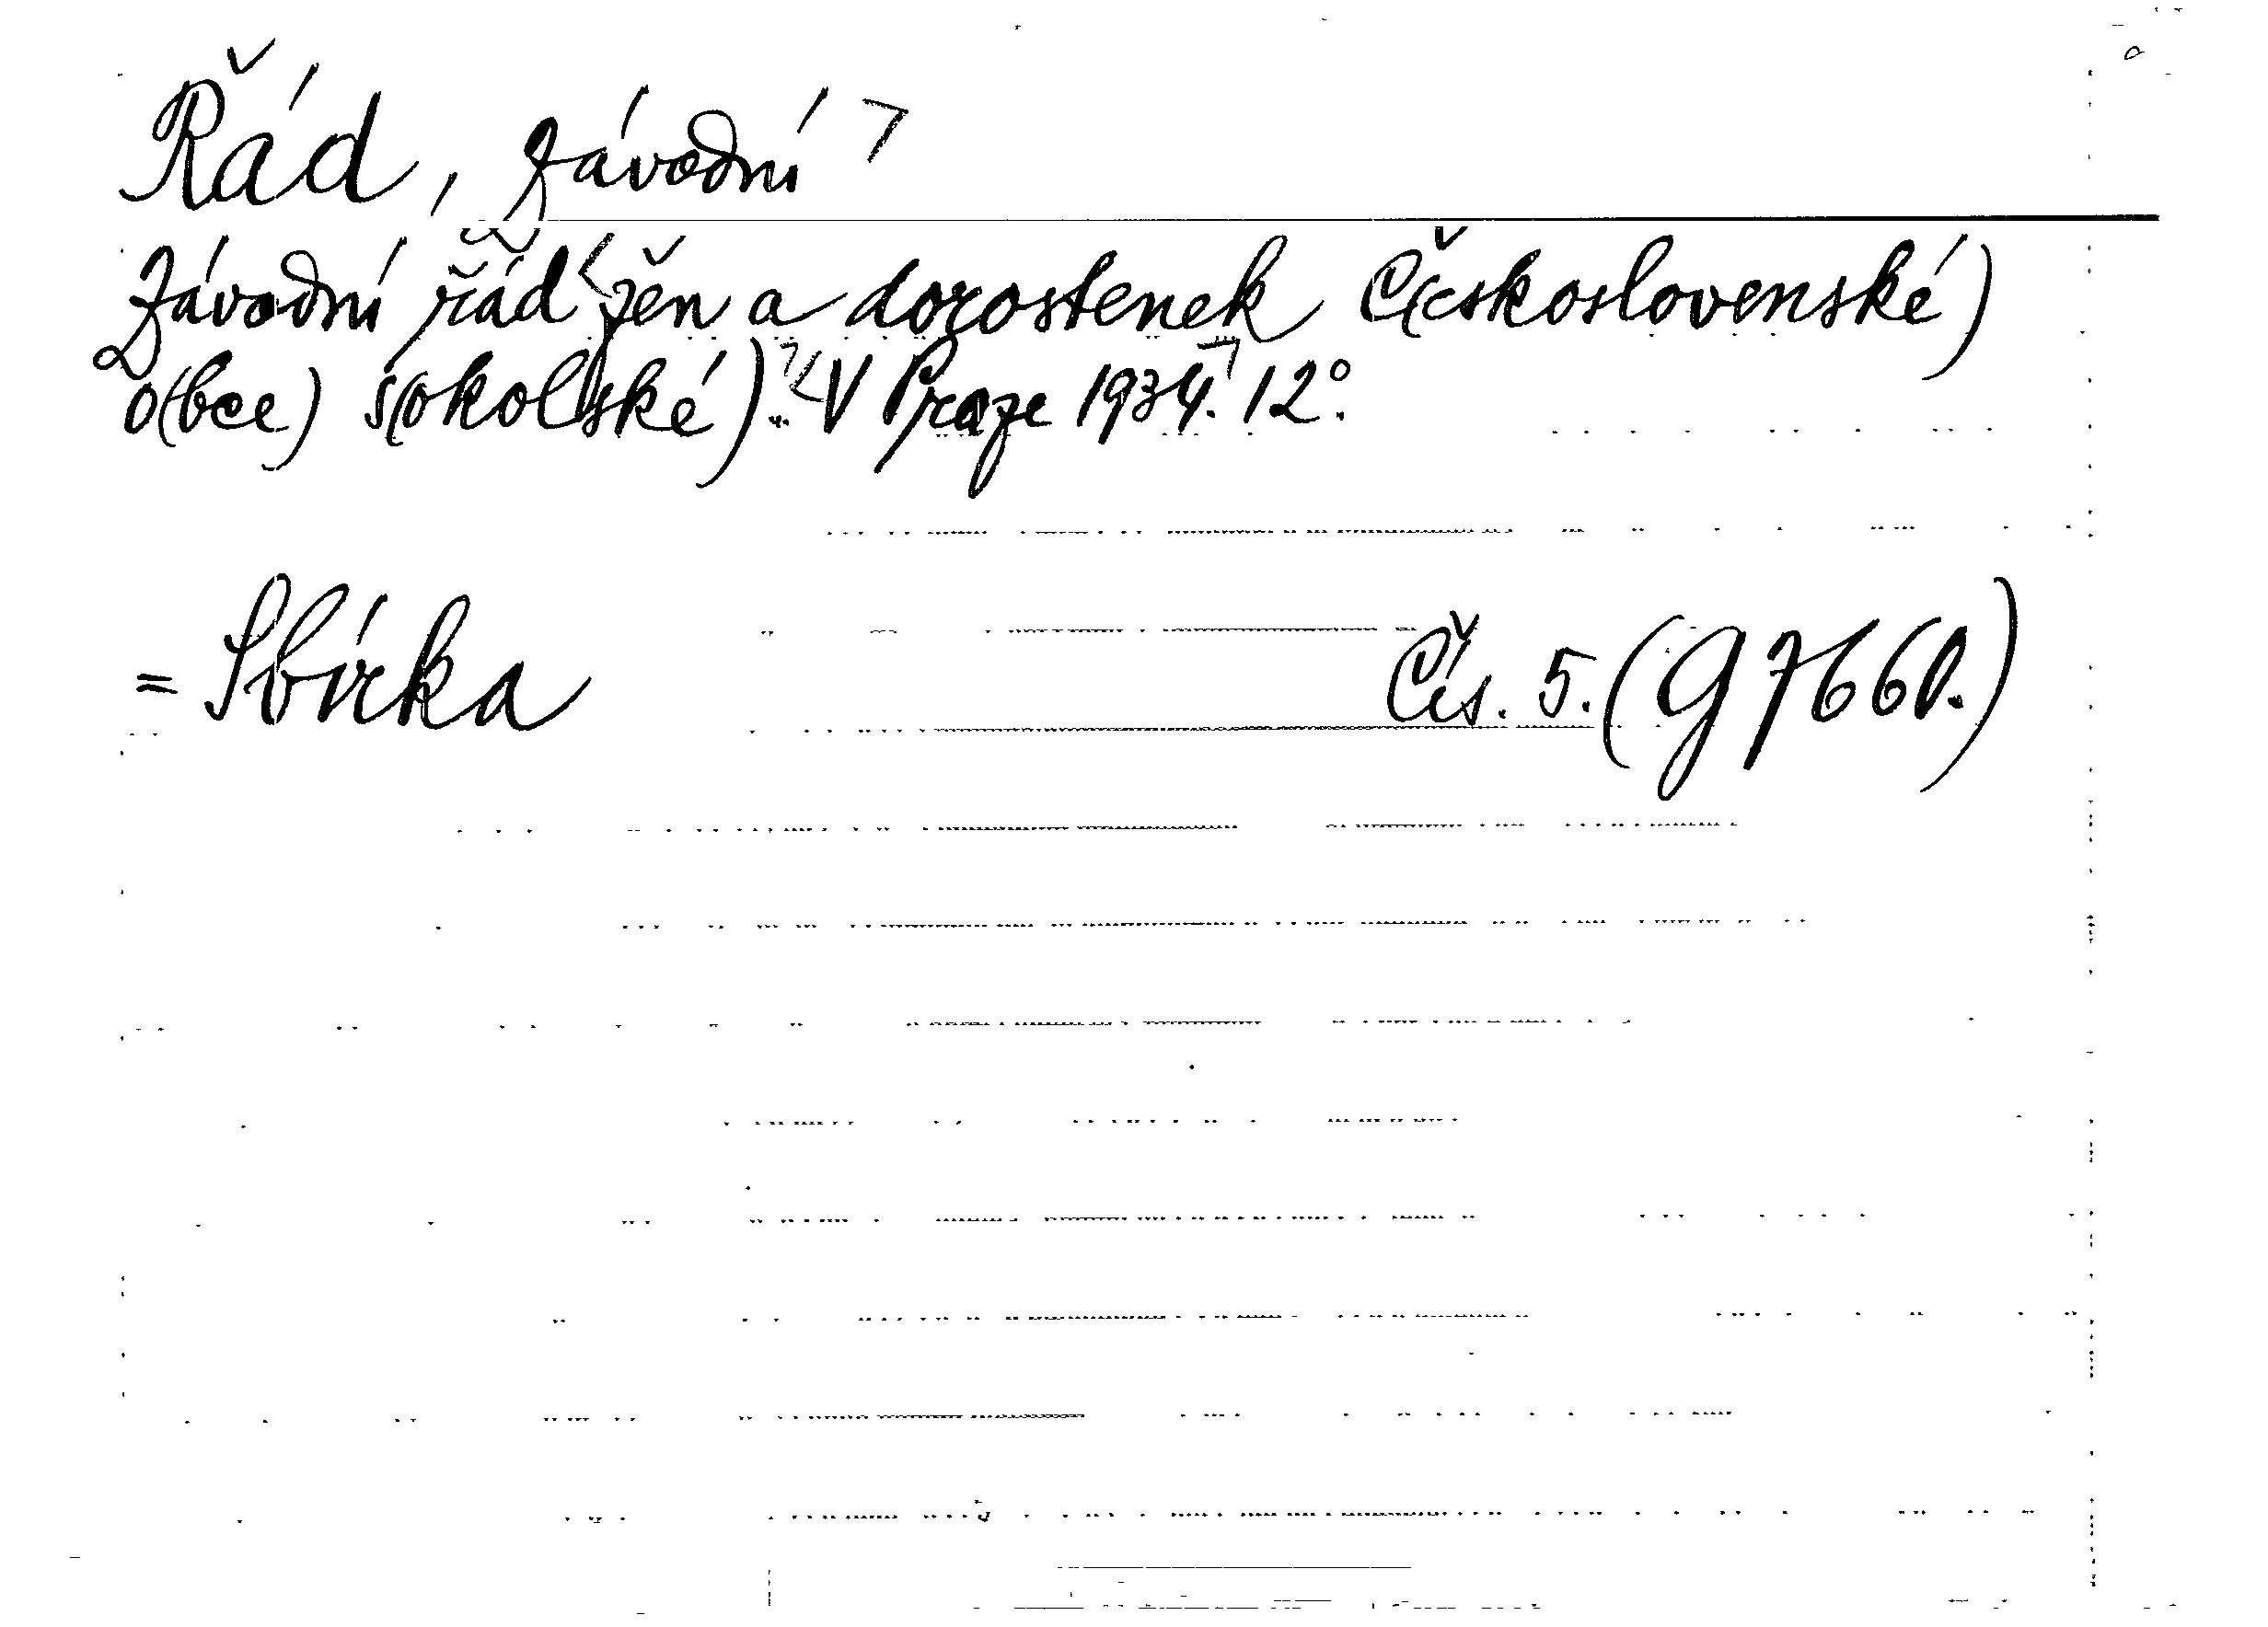 Řád, závodní
Závodní řád žen a dorostenek Č(eskoslovenské)
o(bce) s(okolské). V Praze 1934. 12°.
= Sbírka Čís. 5. (G 7660.)